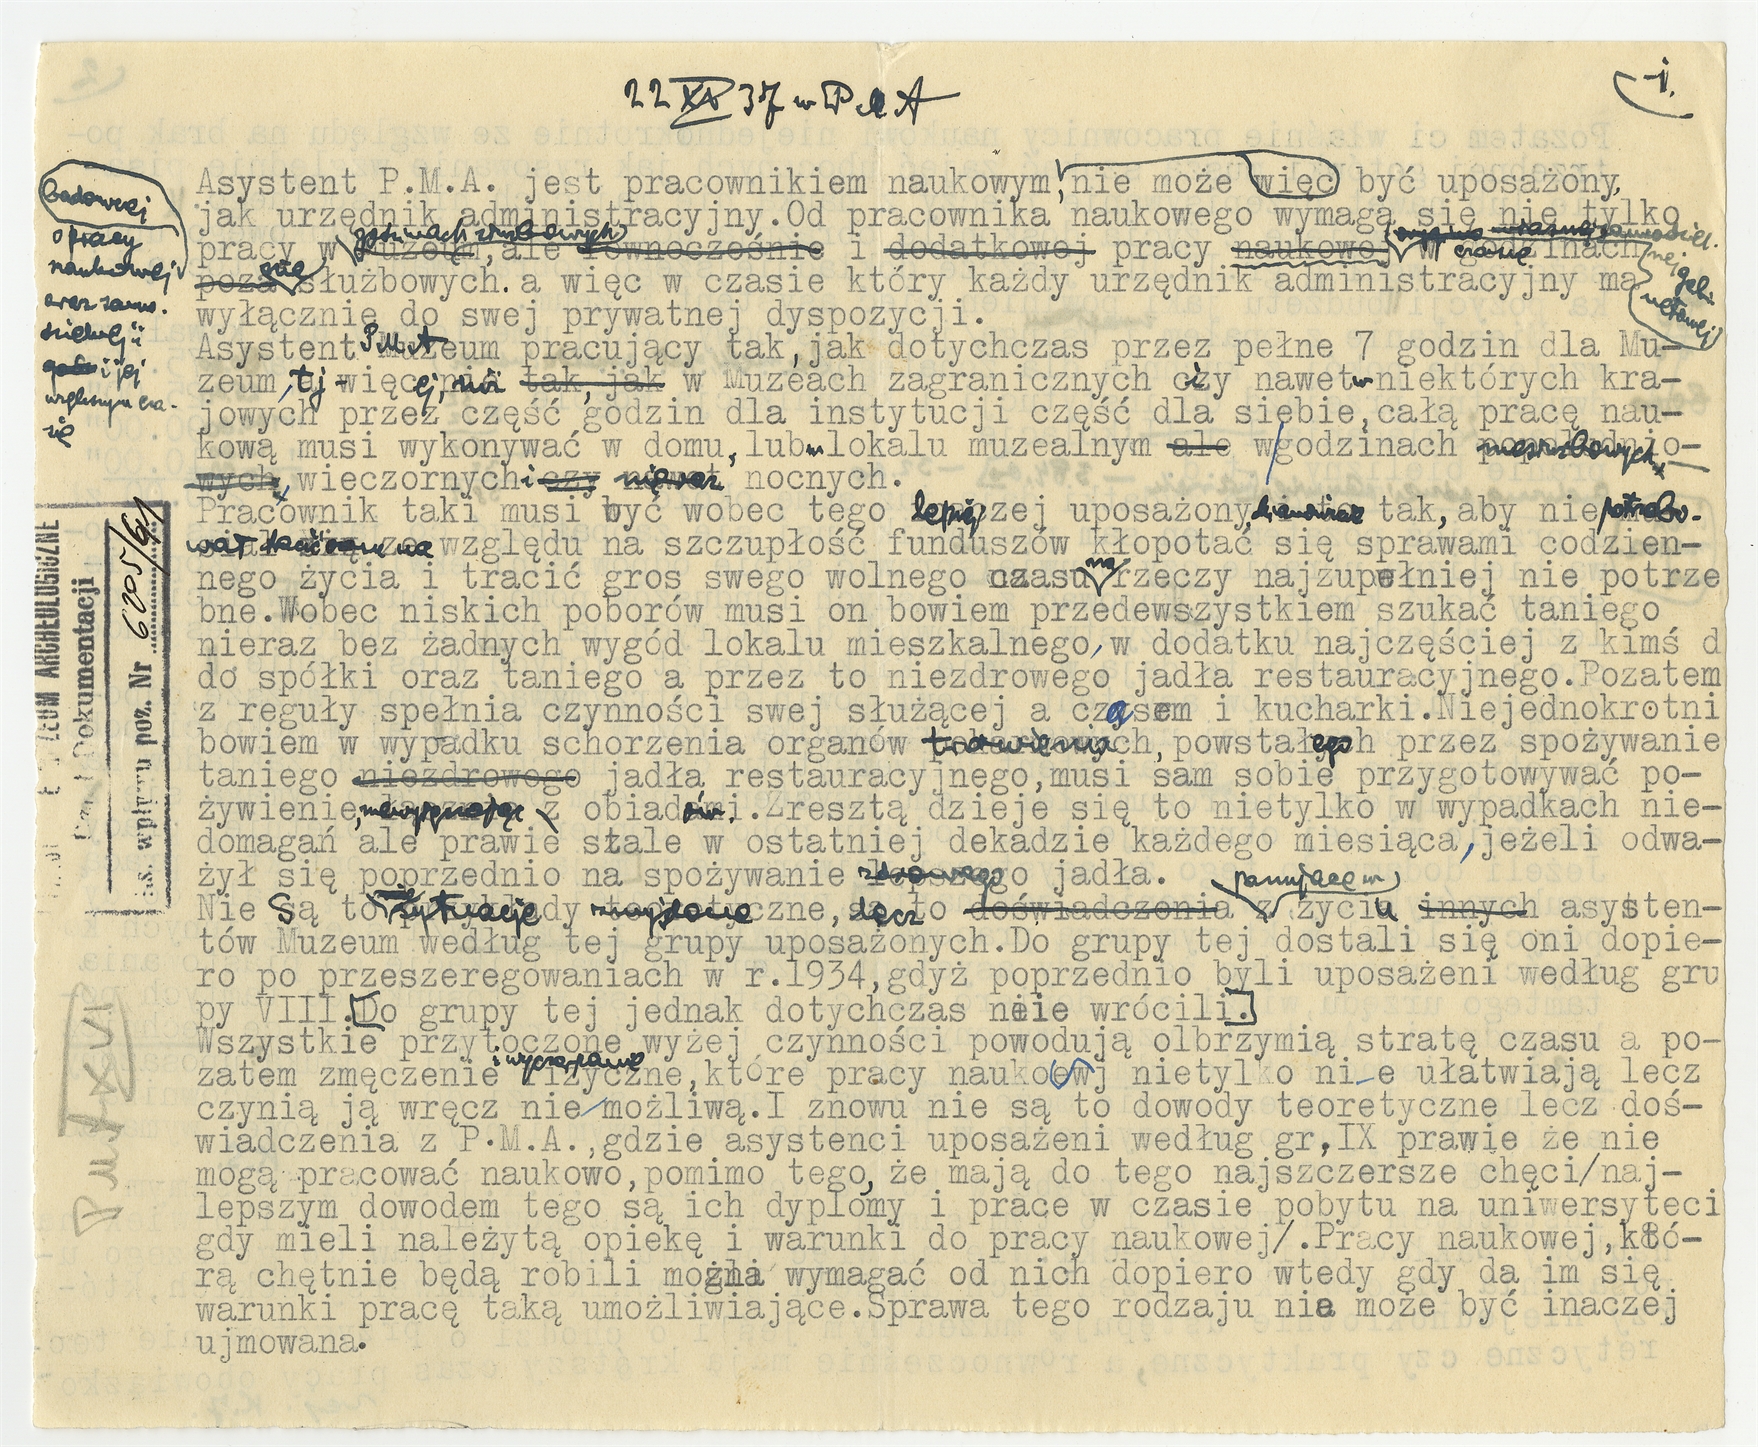 22 XI 37 w PMA
1.
Asystent P.M.A. jest pracownikiem naukowym, nie może więc być uposażony,
jak urzędnik administracyjny.Od pracownika naukowego wymaga się nie tylko
godzinach służbowych
pracy w Muzeum,ale równocześnie i dodatkowej pracy naukowo, w czasie godzinach
poza służbowych. a więc w czasie który każdy urzędnik administracyjny ma
wyłącznie do swej prywatnej dyspozycji.
Asystent PMA Muzeum pracujący tak,jak dotychczas przez pełne 7 godzin dla Mu-
zeum, tj więcej, niż tak, jak w Muzeach zagranicznych czy nawet w niektórych kra-
jowych przez część godzin dla instytucji część dla siebie,całą pracę nau-
kową musi wykonywać w domu, lub w lokalu muzealnym ale w godzinach
wych, wieczornych i czy nocnych.
Pracownik taki musi być wobec tego lepiej uposażony, tak,aby nie potrzebo-
wał ze względu na szczupłość funduszów kłopotać się sprawami codzien-
nego życia i tracić gros swego wolnego czasu na rzeczy najzupełniej nie potrze
bne.Wobec niskich poborów musi on bowiem przedewszystkiem szukać taniego
nieraz bez żadnych wygód lokalu mieszkalnego, w dodatku najczęściej z kimś d
do spółki oraz taniego a przez to niezdrowego jadła restauracyjnego.Pozatem
z reguły spełnia czynności swej służącej a czasem i kucharki.Niejednokrotni
bowiem w wypadku schorzenia organów trawienia, powstałego przez spożywanie
taniego niezdrowego jadła restauracyjnego,musi sam sobie przygotowywać po-
żywienie, z obiadami.Zresztą dzieje się to nietylko w wypadkach nie-
domagań ale prawie stale w ostatniej dekadzie każdego miesiąca,jeżeli odwa-
żył się poprzednio na spożywanie zdrowego jadła.
panującem
Nie są to sytuacje zmyślone lecz to doświadczenia z życiu innych asysten-
tów Muzeum według tej grupy uposażonych.Do grupy tej dostali się oni dopie-
ro po przeszeregowaniach w r.1934,gdyż poprzednio byli uposażeni według gru
py VIII.[Do grupy tej jednak dotychczas nie wrócili.]
Wszystkie przytoczone wyżej czynności powodują olbrzymią stratę czasu a po-
i wyczerpanie
zatem zmęczenie fizyczne,które pracy naukowej nietylko nie ułatwiają lecz
czynią ją wręcz nie możliwą.I znowu nie są to dowody teoretyczne lecz doś-
wiadczenia z P.M.A.,gdzie asystenci uposażeni według gr,IX prawie że nie
mogą pracować naukowo,pomimo tego, że mają do tego najszczersze chęci/naj-
lepszym dowodem tego są ich dyplomy i prace w czasie pobytu na uniwersyteci
gdy mieli należytą opiekę i warunki do pracy naukowej/.Pracy naukowej,któ-
rą chętnie będą robili można wymagać od nich dopiero wtedy gdy da im się
warunki pracę taką umożliwiające.Sprawa tego rodzaju nie może być inaczej
ujmowana.
badawczej
o pracy
naukowej
oraz samo-
dzielnej i
i jej
względnym cza-
sie
ARCHEOLOGICZNE
Dokumentacji
wpływu poz. Nr 6205/61
PMA XVI